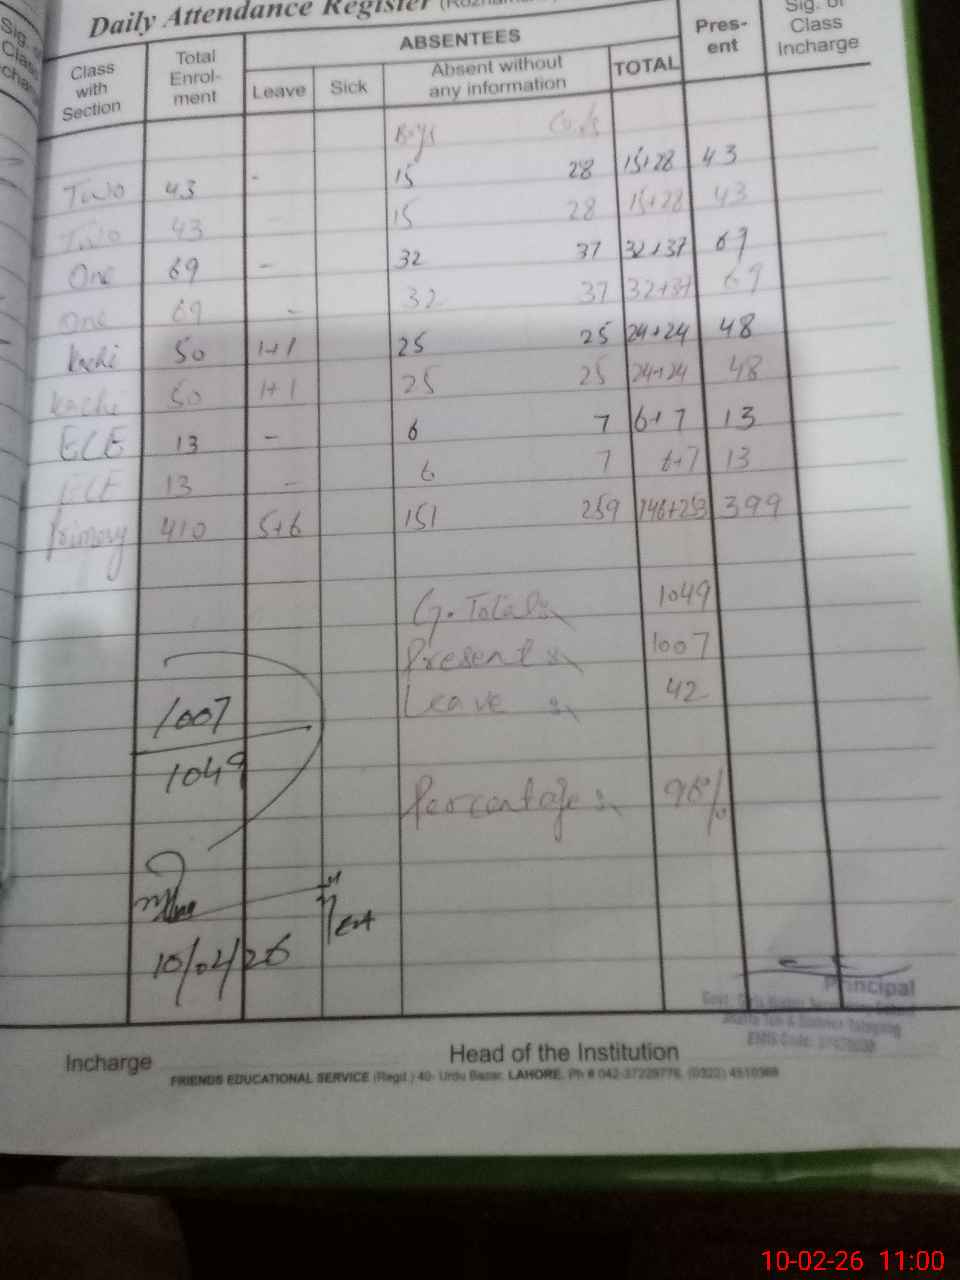 Daily Attendance Register
Class with Section | Total Enrol-ment | ABSENTEES | Pres-ent | Sig. of Class Incharge
Leave | Sick | Absent without any information | TOTAL
Boys
Two 43 - 15 28 15+28 43
Two 43 15 28 15+28 43
One 69 - 32 37 32+37 69
One 69 - 32 37 32+37 69
Kachi 50 1+1 25 25 24+24 48
Kachi 50 1+1 25 25 24+24 48
ECE 13 - 6 7 6+7 13
ECE 13 - 6 7 6+7 13
Primary 410 5+6 151 259 146+253 399
G. Total 1049
Present 1007
Leave 42
1007
1049
Percentage 96%
10/02/26
Principal
Incharge
Head of the Institution
FRIENDS EDUCATIONAL SERVICE (Regd.) 40- Urdu Bazar, LAHORE, Ph # 042-37229776, (0322) 4510368
10-02-26 11:00